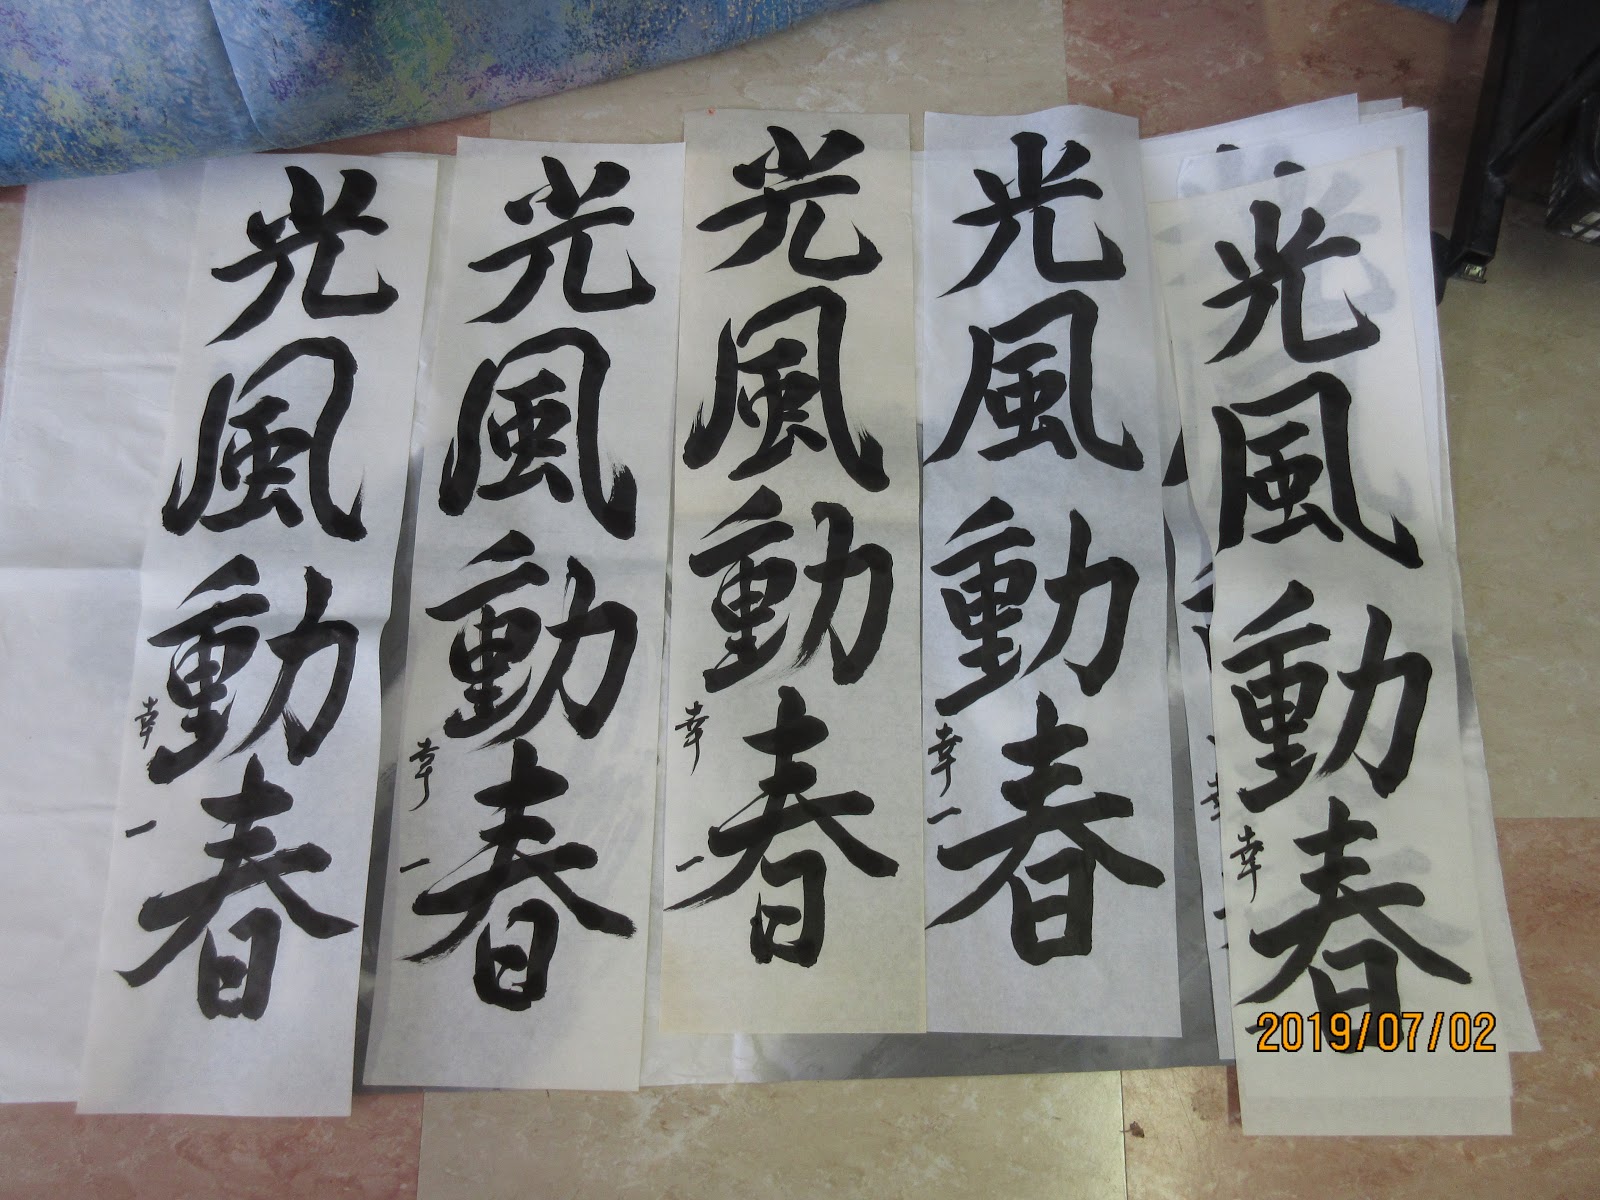 光風動春
幸一
光風動春
幸一
光風動春
幸一
光風動春
幸一
光風動春
幸一
2019/07/02